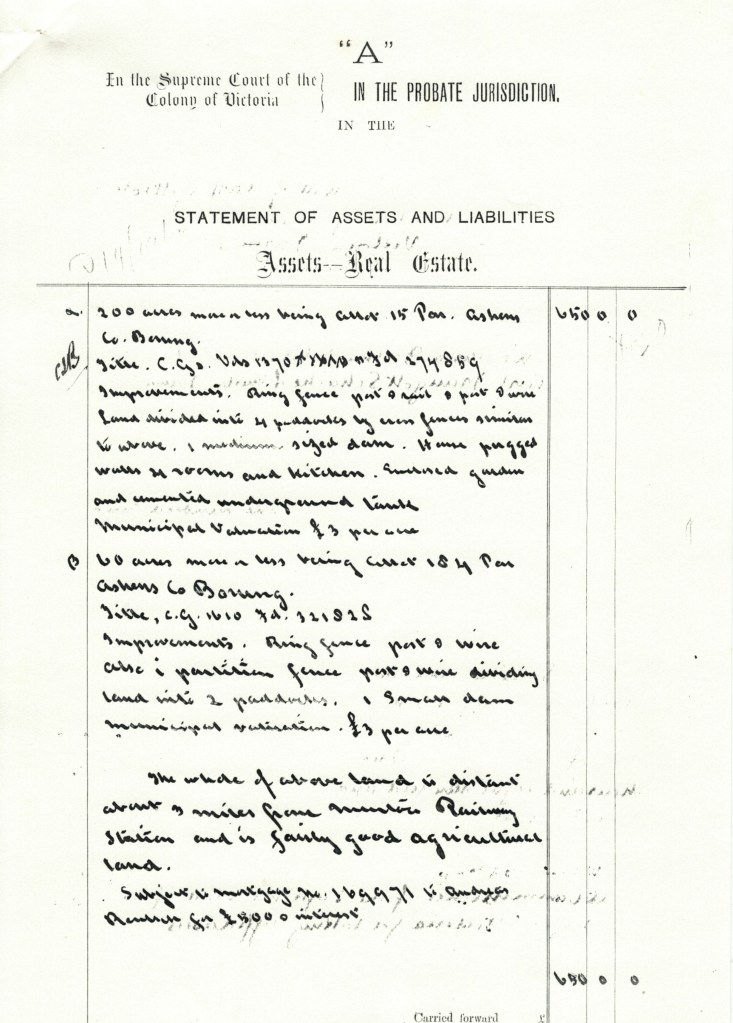 "A"
In the Supreme Court of the
Colony of Victoria
IN THE PROBATE JURISDICTION.
IN THE
STATEMENT OF ASSETS AND LIABILITIES
Assets—Real Estate.
200 acres more or less being allot 15 Par. Ashens 650 0 0
Co. Borung.
Title. C.G. Vol 1370 Fol 274859
Improvements. Ring fence post & rail & post & wire
Land divided into 4 paddocks by cross fences similar
to above. 1 medium sized dam. House pugged
walls 4 rooms and kitchen. Enclosed garden
and cemented underground tank
Municipal Valuation £3 per acre
B 60 acres more or less being allot 184 Par
Ashens Co Borung.
Title, C.G. 1610 Fol. 321825
Improvements. Ring fence post & wire
also 1 partition fence post & wire dividing
land into 2 paddocks. 1 Small dam
Municipal valuation. £3 per acre
The whole of above land is distant
about 3 miles from Murtoa Railway
Station and is fairly good agricultural
land.
Subject to mortgage No. 169971 to Andreas
for £500 & interest
650 0 0
Carried forward £